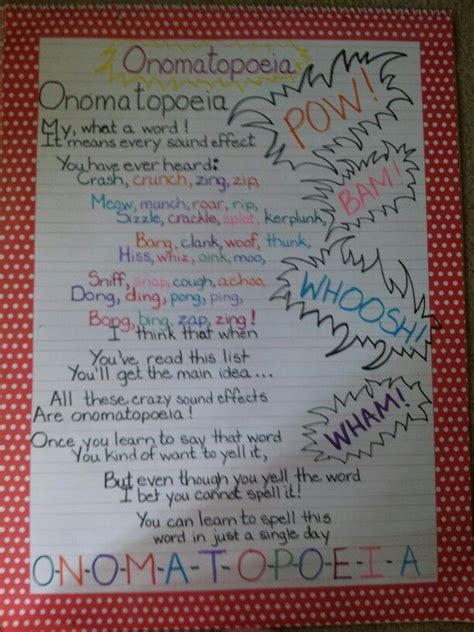 Onomatopoeia
Onomatopoeia
My, what a word!
It means every sound effect
You have ever heard:
Crash, crunch, zing, zip,
Meow, munch, roar, rip,
Sizzle, crackle, splat, kerplunk,
Bang, clank, woof, thunk,
Hiss, whiz, oink, moo,
Sniff, snap, cough, achoo,
Dong, ding, pong, ping,
Bong, bing, zap, zing!
I think that when
You've read this list
You'll get the main idea...
All these crazy sound effects
Are onomatopoeia!
Once you learn to say that word
You kind of want to yell it,
But even though you yell the word
I bet you cannot spell it!
You can learn to spell this
word in just a single day
O-N-O-M-A-T-O-P-O-E-I-A
POW!
BAM!
WHOOSH!
WHAM!